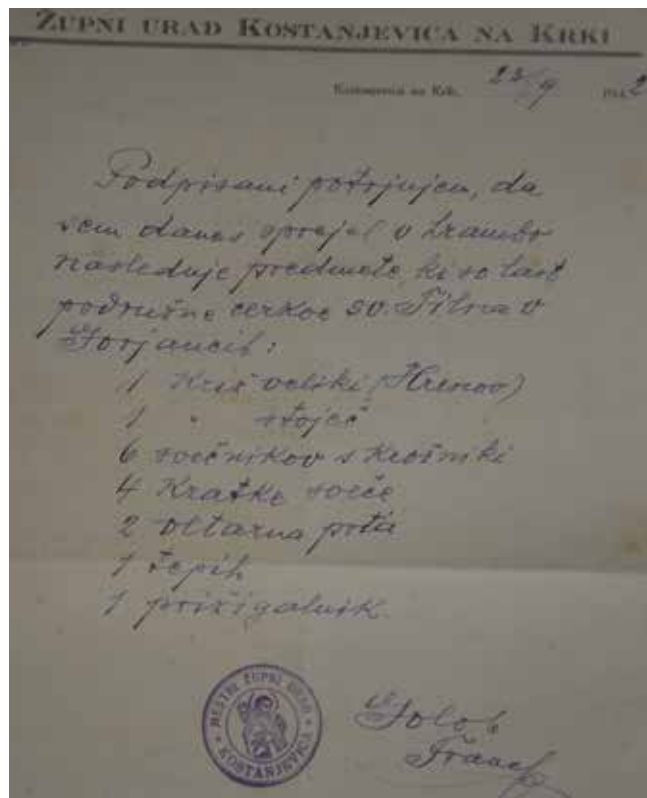 ŽUPNI URAD KOSTANJEVICA NA KRKI
Kostanjevica na Krki, 23/9 1942
Podpisani potrjujem, da
sem danes sprejel v hrambo
nasleduje predmete, ki so last
podružne cerkve sv. Filna v
Gorjancih:
1 Križ veliki (Hrenov)
1 " stoječ
6 svečnikov s krožniki
4 Kratke sveče
2 oltarna prta
1 tepih
1 prižigalnik.
MESTNI ŽUPNI URAD
KOSTANJEVICA
Golob
Franc